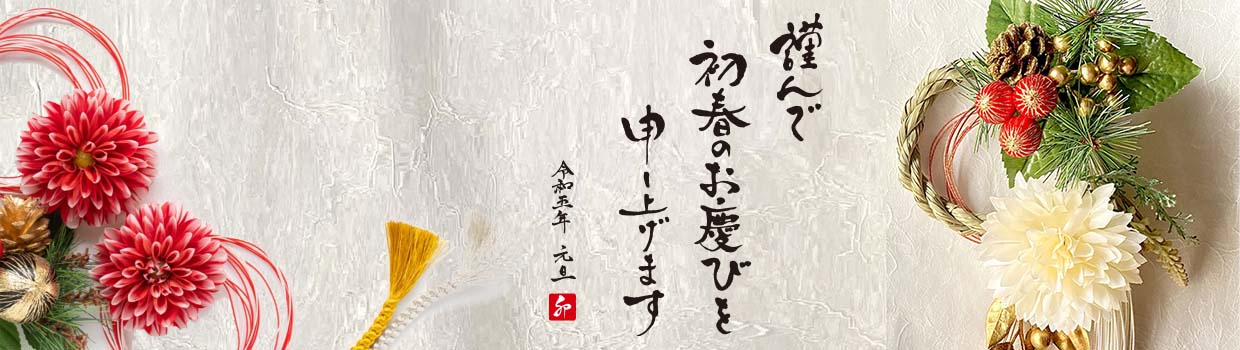 謹んで
初春のお慶びを
申し上げます
令和五年 元旦
卯